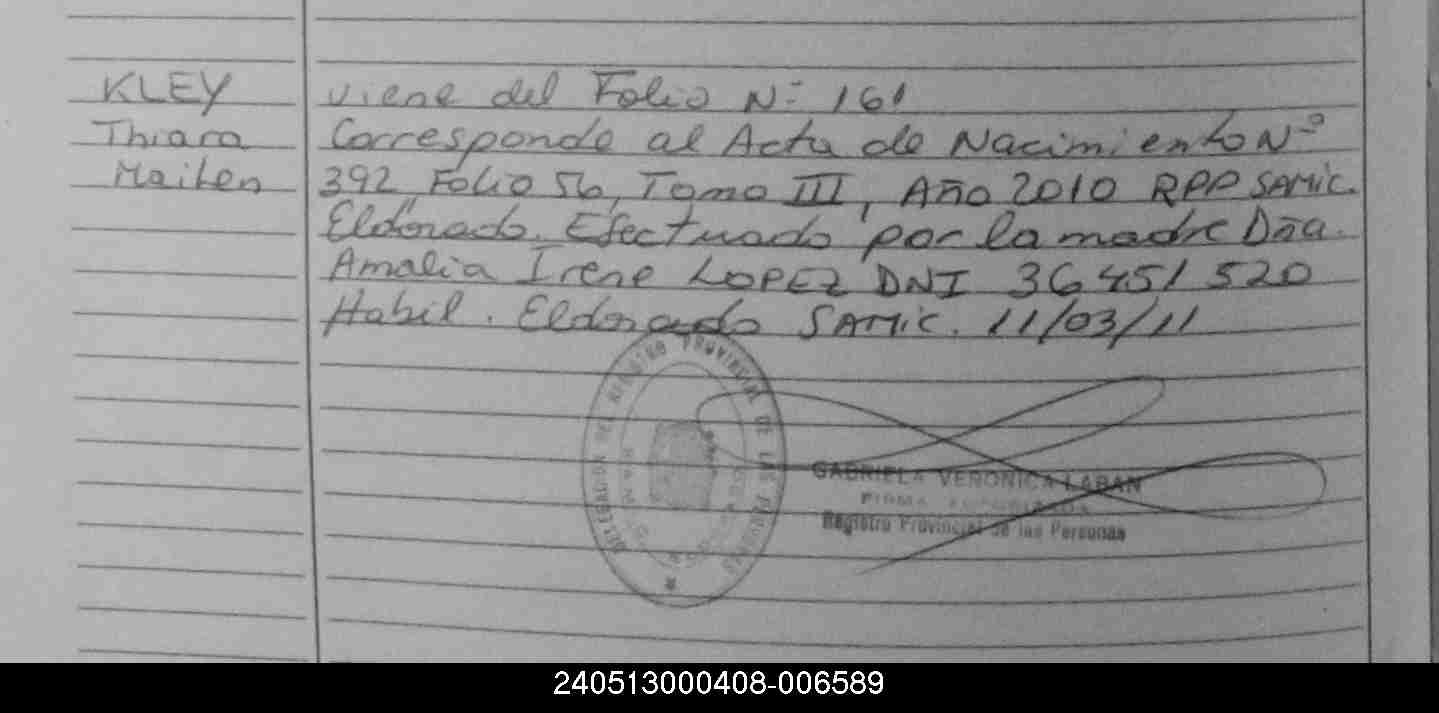 KLEY
Thiara
Mailen
viene del Folio Nº 161
Corresponde al Acta de Nacimiento Nº
392, Folio 56, Tomo III, Año 2010 RPP SAMIC.
Eldorado. Efectuado por la madre Dña.
Amalia Irene LOPEZ DNI 36 451 520
Habil. Eldorado SAMIC. 11/03/11
DELEGACION DEL REGISTRO PROVINCIAL DE LAS PERSONAS
GABRIELA VERONICA LABAN
FIRMA AUTORIZADA
Registro Provincial de las Personas
240513000408-006589